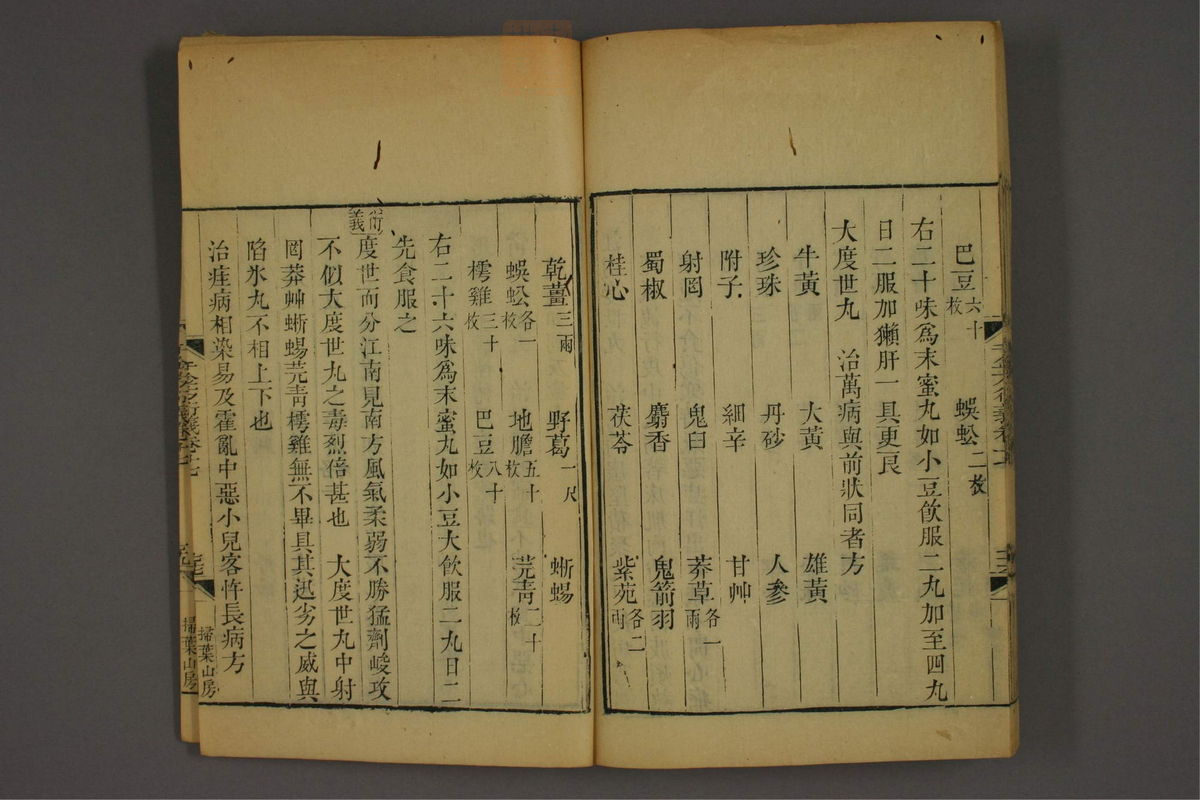 巴豆六十枚　蜈蚣二枚
右二十味為末蜜丸如小豆飲服二丸加至四丸
日二服加獺肝一具更良
大度世丸　治萬病與前狀同者方
牛黃　大黃　雄黃
珍珠　丹砂　人參
附子　細辛　甘艸
射罔　鬼臼　莽草各一兩
蜀椒　麝香　鬼箭羽
桂心　茯苓　紫苑各二兩
乾薑三兩　野葛一尺　蜥蜴
蜈蚣各一枚　地膽五十枚　芫青二十枚
樗雞三十枚　巴豆八十枚
右二十六味爲末蜜丸如小豆大飲服二丸日二
先食服之
衍義度世而分江南見南方風氣柔弱不勝猛劑峻攻
不似大度世丸之毒烈倍甚也　大度世丸中射
罔莽艸蜥蜴芫靑樗雞無不畢具其迅劣之威與
陷氷丸不相上下也
治疰病相染易及霍亂中惡小兒客忤長病方
掃葉山房
掃葉山房